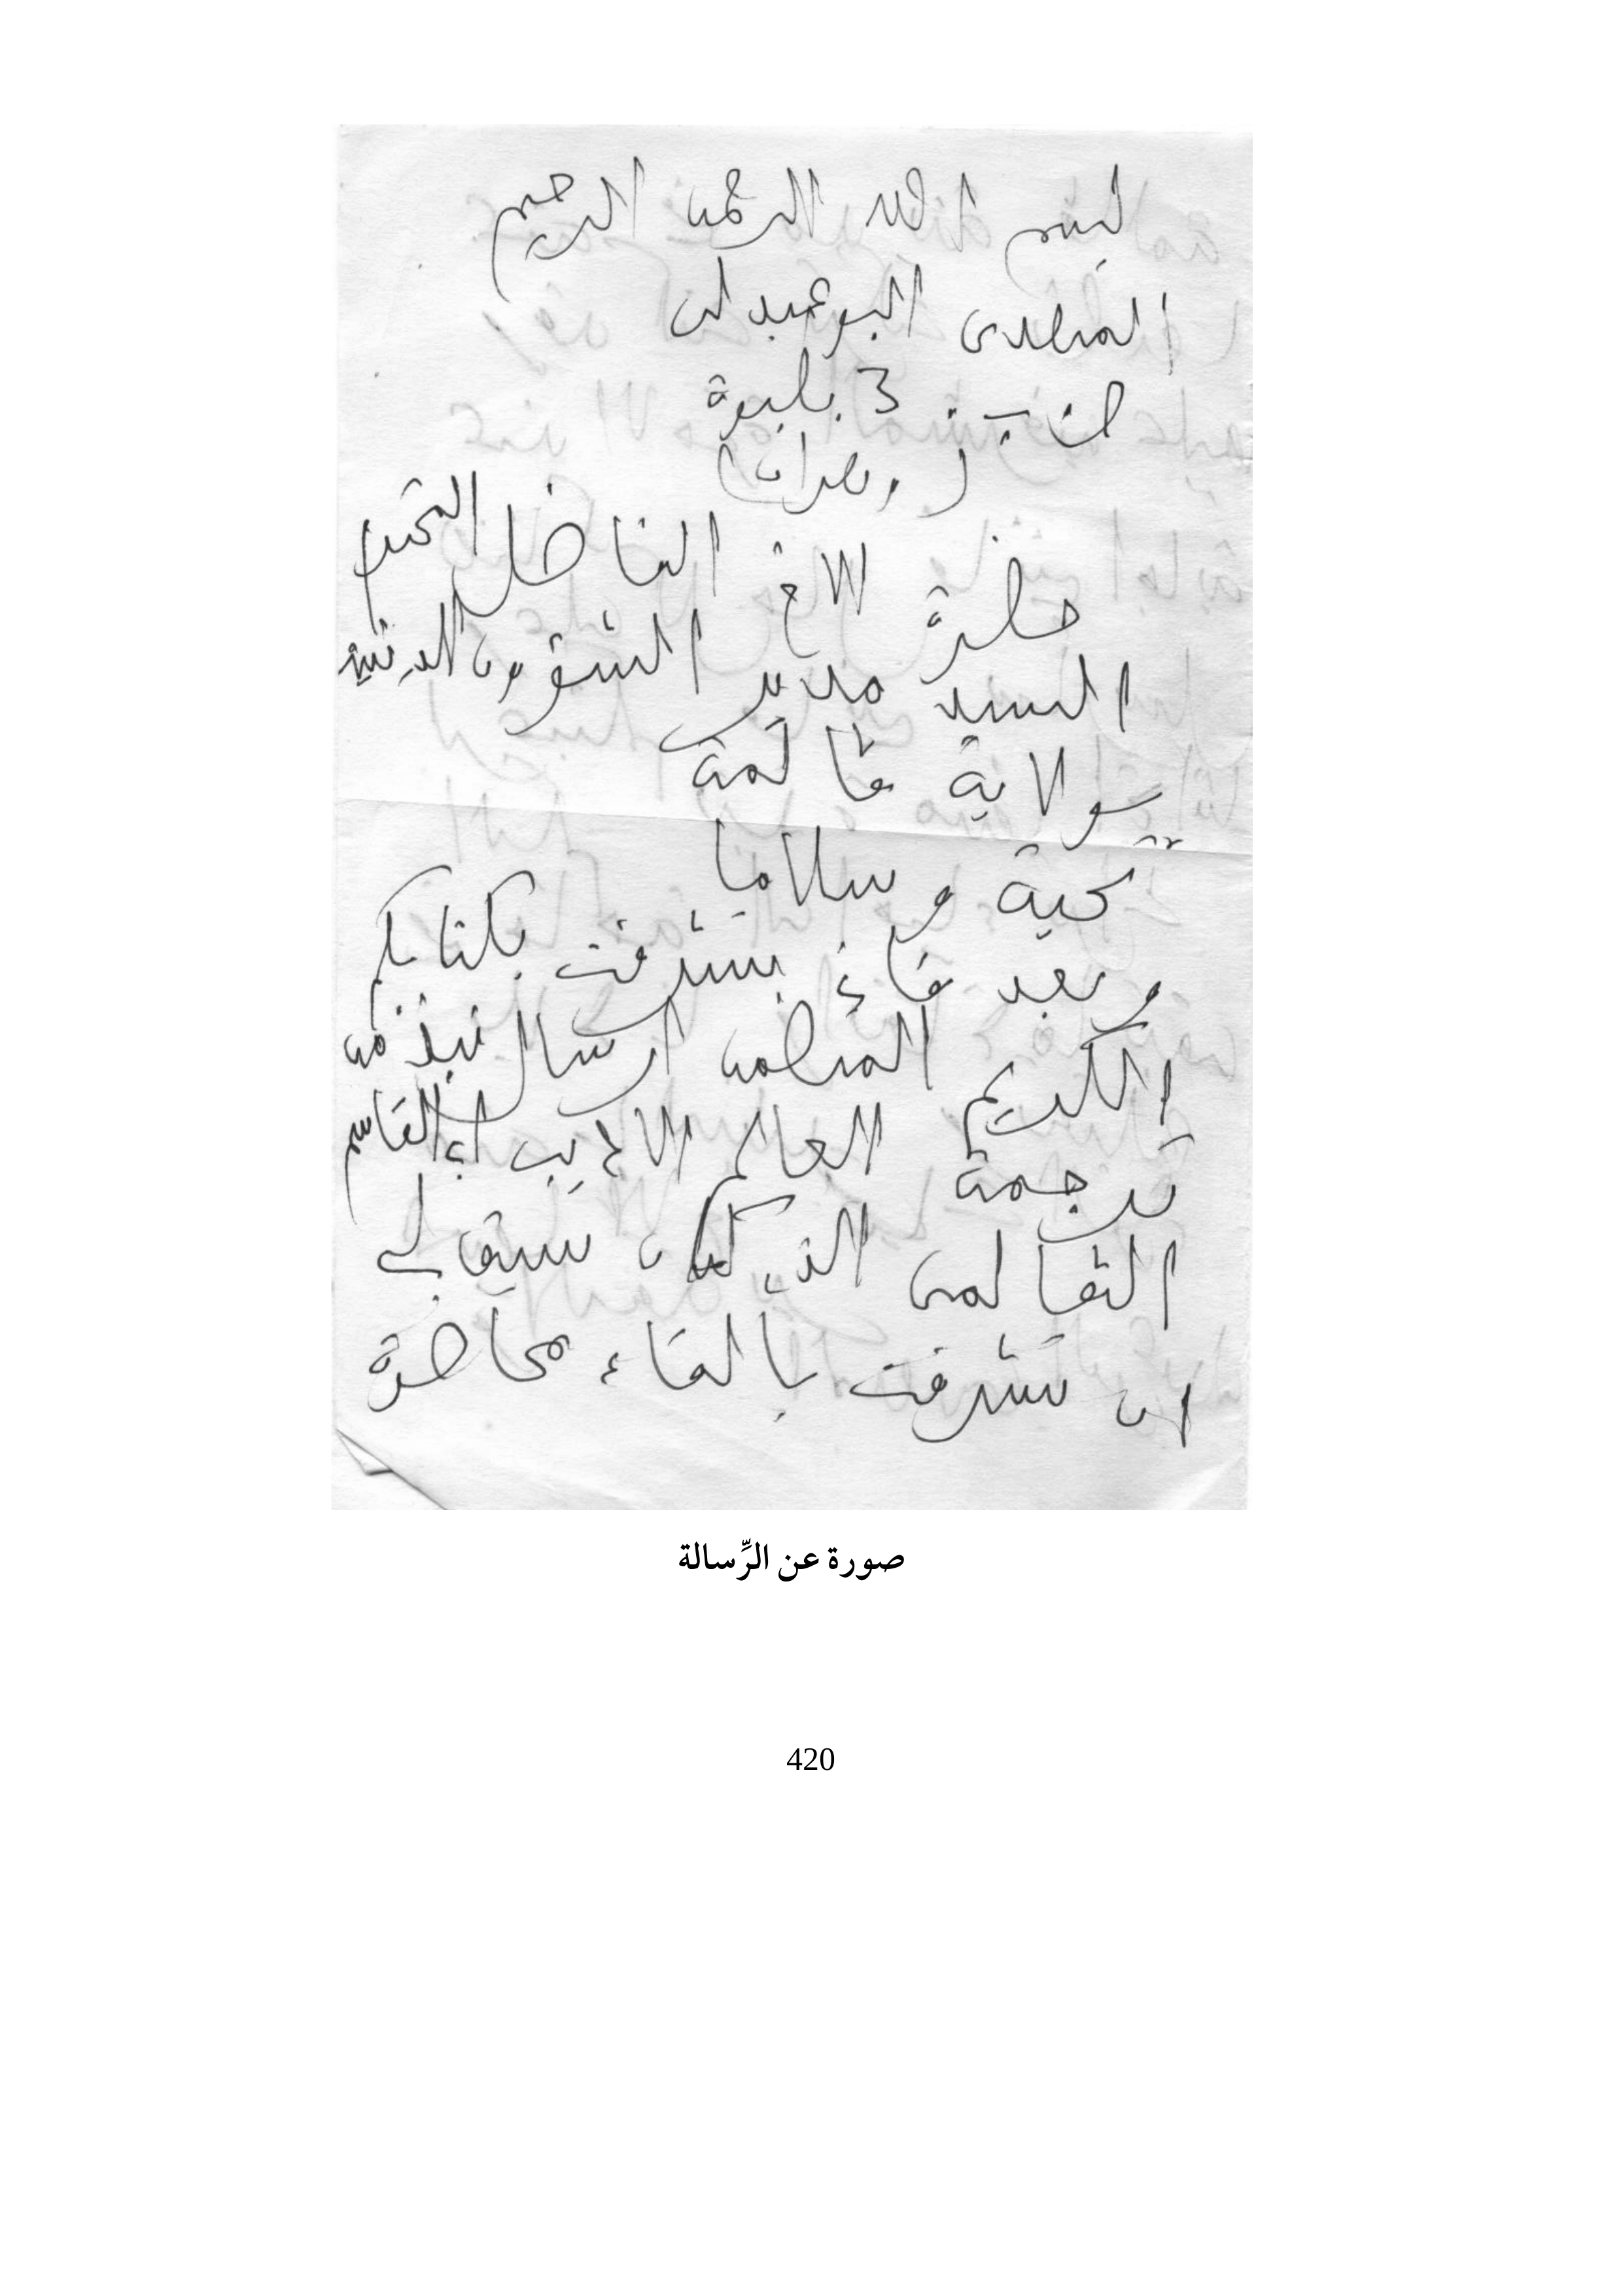 بسم الله الرحمن الرحيم
المهدي البوعبدلي
ص ب 3 بطيوة
(وهران)
حضرة الاخ الفاضل المحترم
السيد مدير الشؤون الدينية
بولاية قالمة
تحية وسلاما
وبعد فإني تشرفت بكتابكم
الكريم المتضمن ارسال نبذ من
ترجمة العالم الاديب أبي القاسم
القالمي الذي كان سبق لي
ان تشرفت بالقاء محاضرة
صورة عن الرِّسالة
420